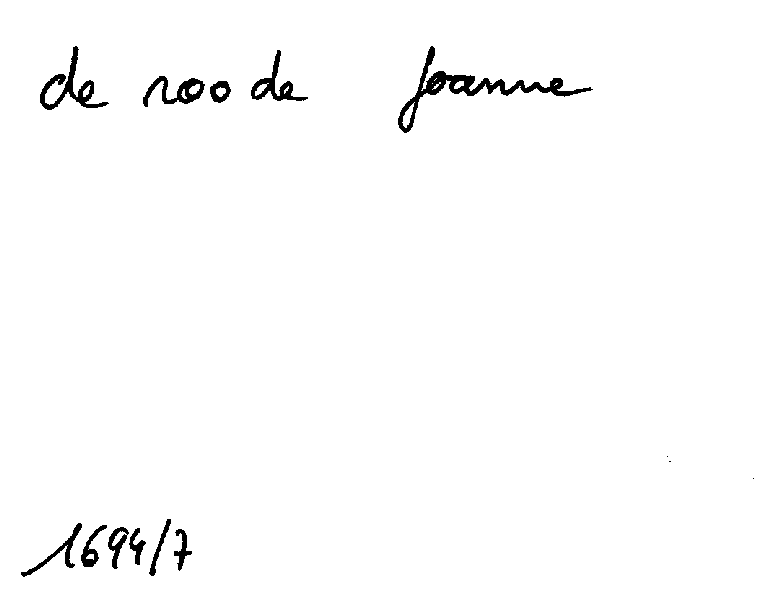 de roode Joanne
1694/7